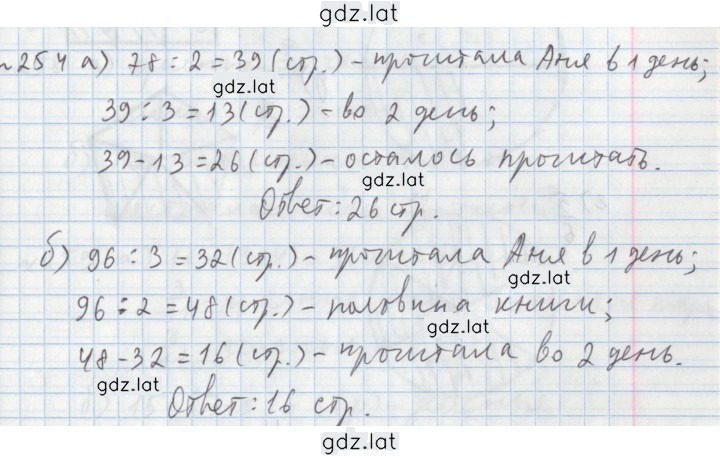 gdz.lat
№254 а) 78 : 2 = 39 (стр.) - прочитала Аня в 1 день;
gdz.lat
39 : 3 = 13 (стр.) - во 2 день;
39 - 13 = 26 (стр.) - осталось прочитать.
gdz.lat
Ответ: 26 стр.
б) 96 : 3 = 32 (стр.) - прочитала Аня в 1 день;
gdz.lat
96 : 2 = 48 (стр.) - половина книги;
gdz.lat
48 - 32 = 16 (стр.) - прочитала во 2 день.
gdz.lat
Ответ: 16 стр.
gdz.lat